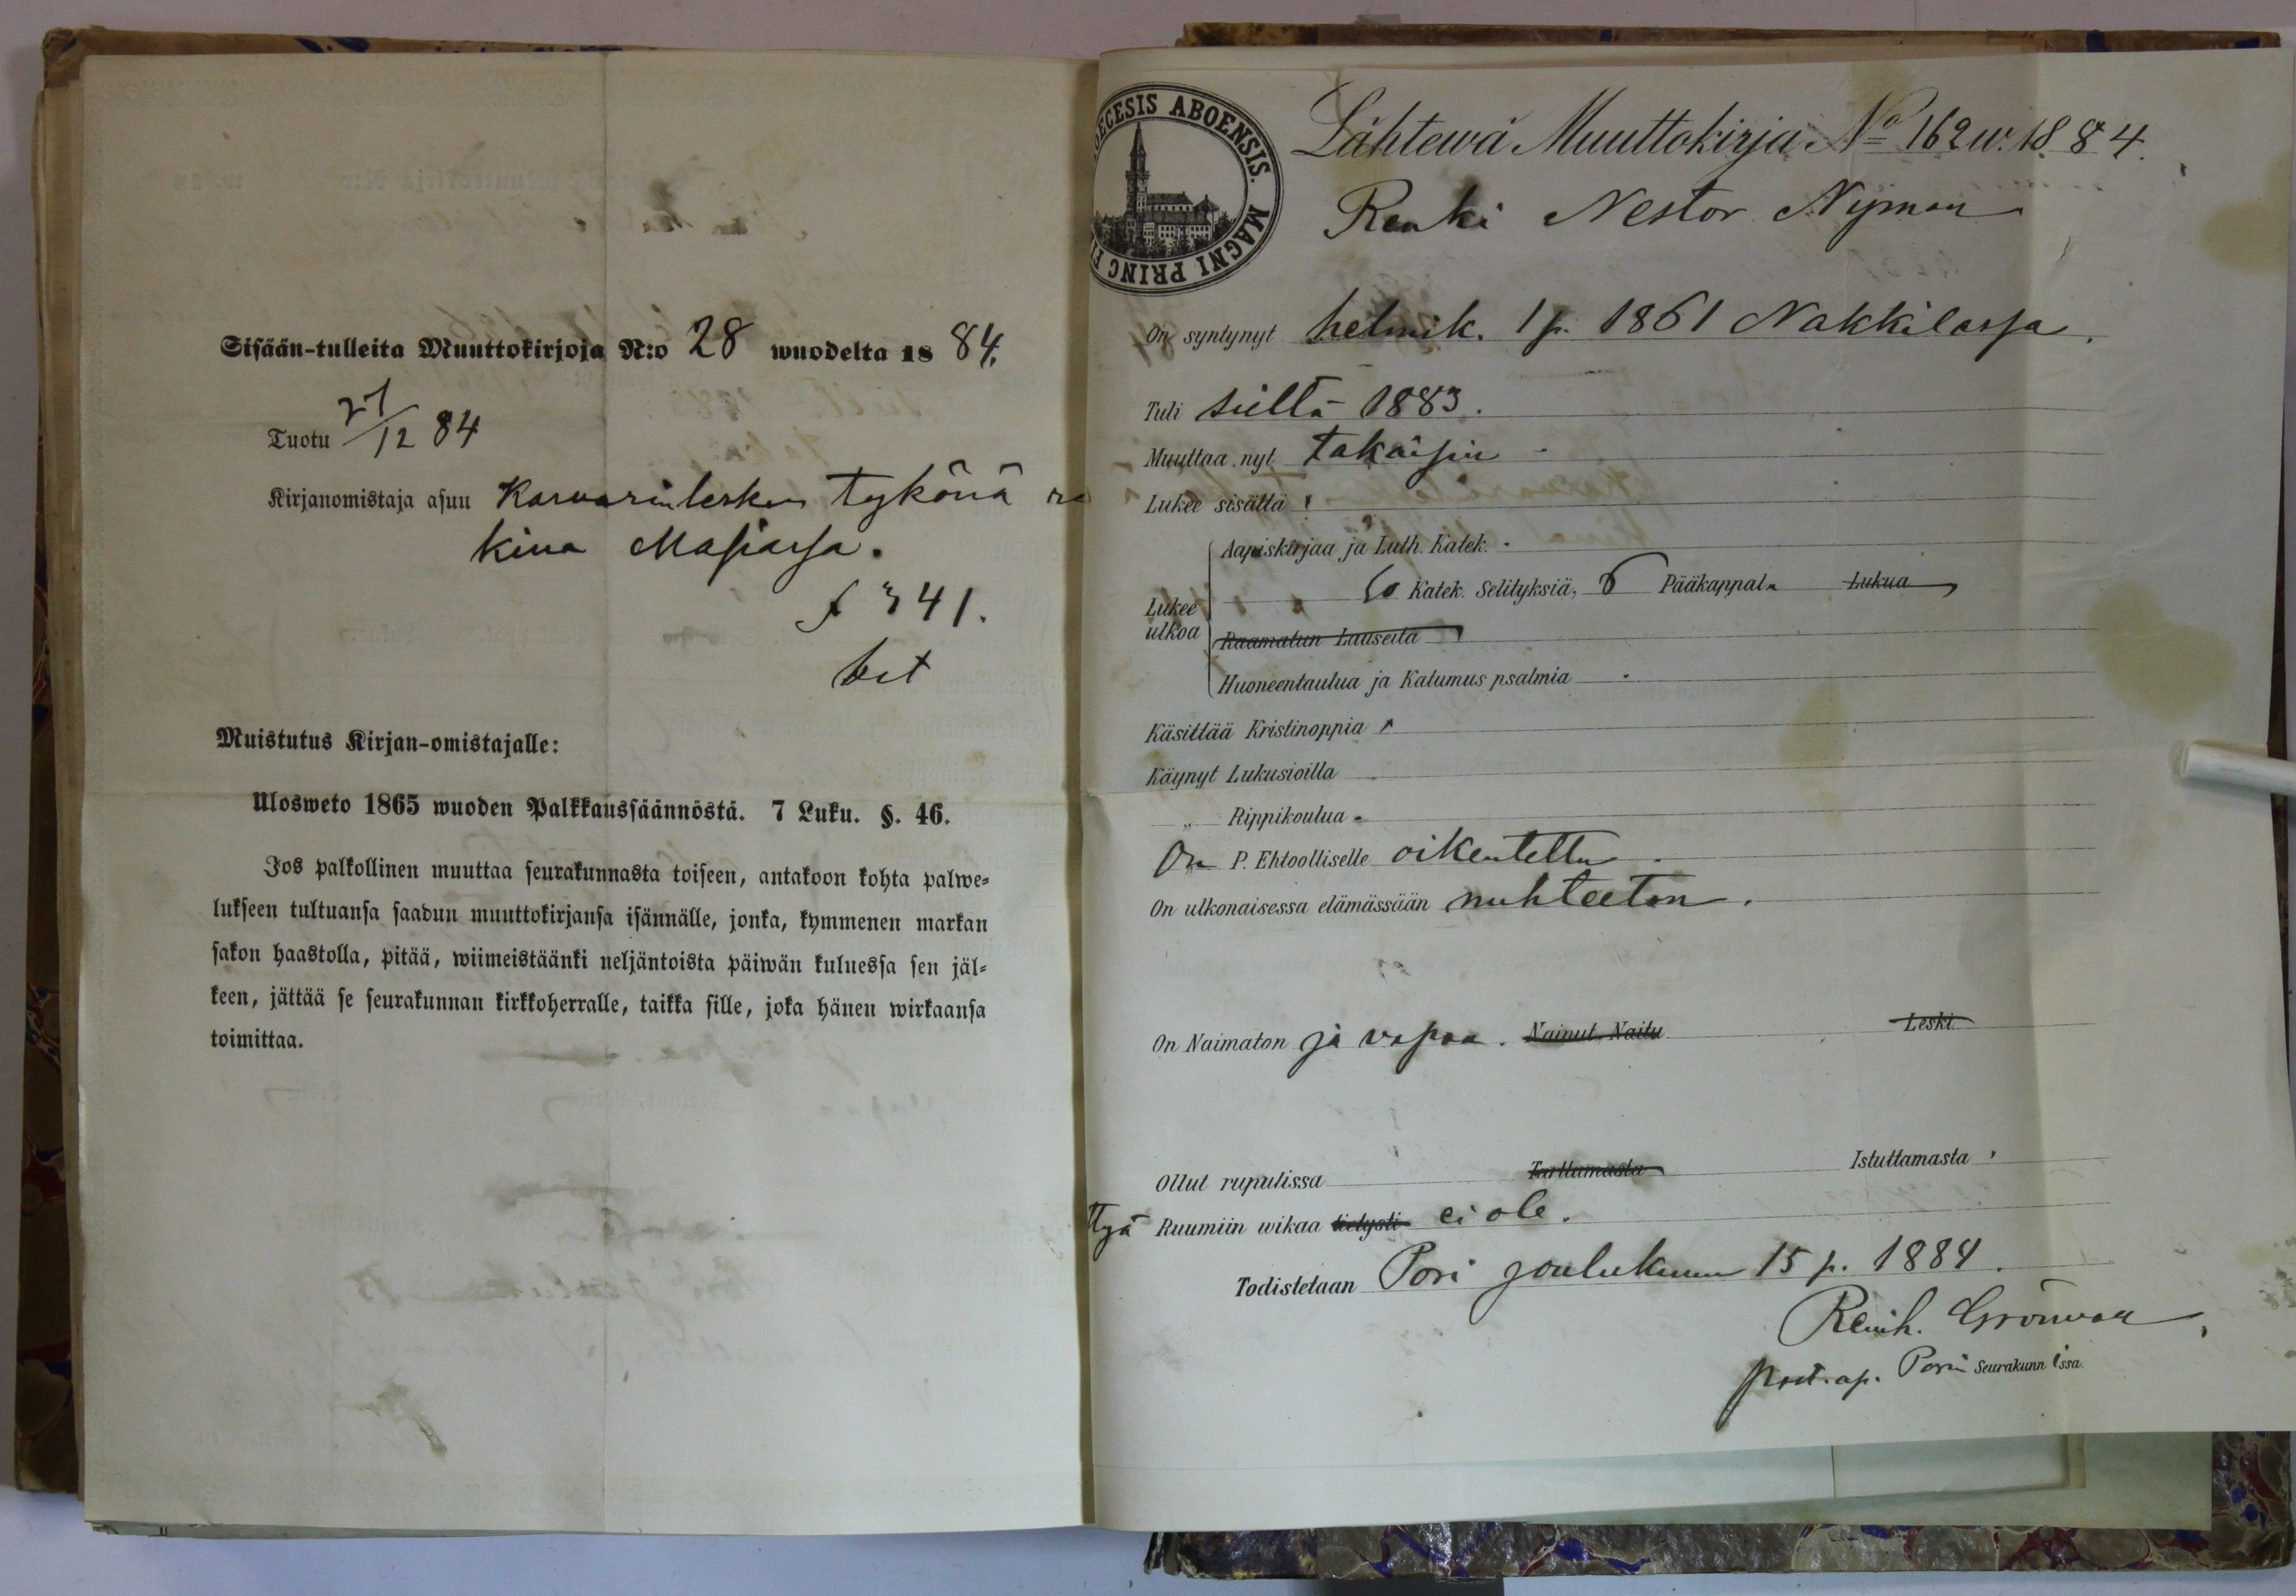 Sisään-tulleita Muuttokirjoja N:o 28 wuodelta 1884.
Tuotu 27/12 84
Kirjanomistaja asuu Karvarinlesken tykönä
kinä Masiassa.
341.
Muistutus Kirjan-omistajalle:
Ulosweto 1865 wuoden Palkkaussäännöstä. 7 Luku. §. 46.
Jos palkollinen muuttaa seurakunnasta toiseen, antakoon kohta palwe-
lukseen tultuansa saadun muuttokirjansa isännälle, jonka, kymmenen markan
sakon haastolla, pitää, wiimeistäänki neljäntoista päiwän kuluessa sen jäl-
keen, jättää se seurakunnan kirkkoherralle, taikka sille, joka hänen wirkaansa
toimittaa.
ECESIS ABOENSIS. MAGNI PRINC FI
Lähtewä Muuttokirja No 162 w. 1884.
Renki Nestor Nyman
On syntynyt helmik. 1 p. 1861 Nakkilassa.
Tuli sieltä 1883.
Muuttaa nyt takaisin
Lukee sisältä
Aapiskirjaa ja Luth. Katek.
Lukee ulkoa
Katek. Selityksiä, 6 Pääkappal. Lukua
Raamatun Lauseita
Huoneentaulua ja Katumus psalmia
Käsittää Kristinoppia
Käynyt Lukusioilla
„ Rippikoulua
On P. Ehtoolliselle oikeutettu.
On ulkonaisessa elämässään nuhteeton.
On Naimaton ja vapaa. Nainut, Naitu Leski
Ollut rupulissa Tarttumasta Istuttamasta
Ruumiin wikaa tietysti ei ole.
Todistetaan Pori joulukuun 15 p. 1884.
Reinh. Grönvall
past. ap. Porin Seurakunnissa.